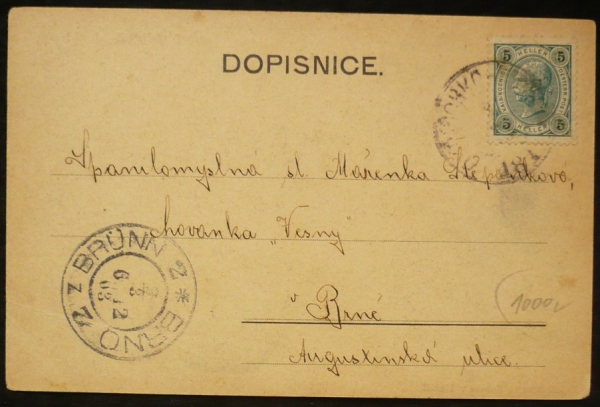 DOPISNICE.
5 HELLER 5
5 HELLER 5
Spanilomyslná sl. Mářenka Štěpánková,
chovanka „Vesny"
v Brně
Augustinská ulice.
BRÜNN 2 * BRNO 2 z
6 12
03
1000,-